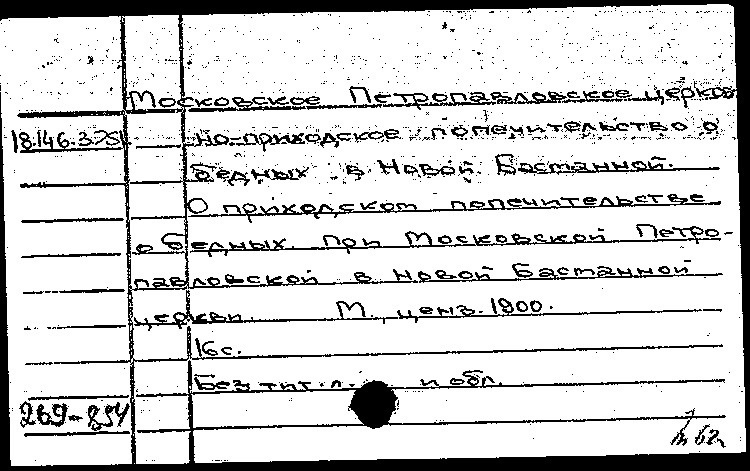 Московское Петропавловское церков-
18.146.3.251. но-приходское попечительство о
бедных в Новой Бастанной.
О приходском попечительстве
о бедных при Московской Петро-
павловской в Новой Бастанной
церкви. М., ценз. 1900.
16с.
Без тит. л. и обл.
269-854